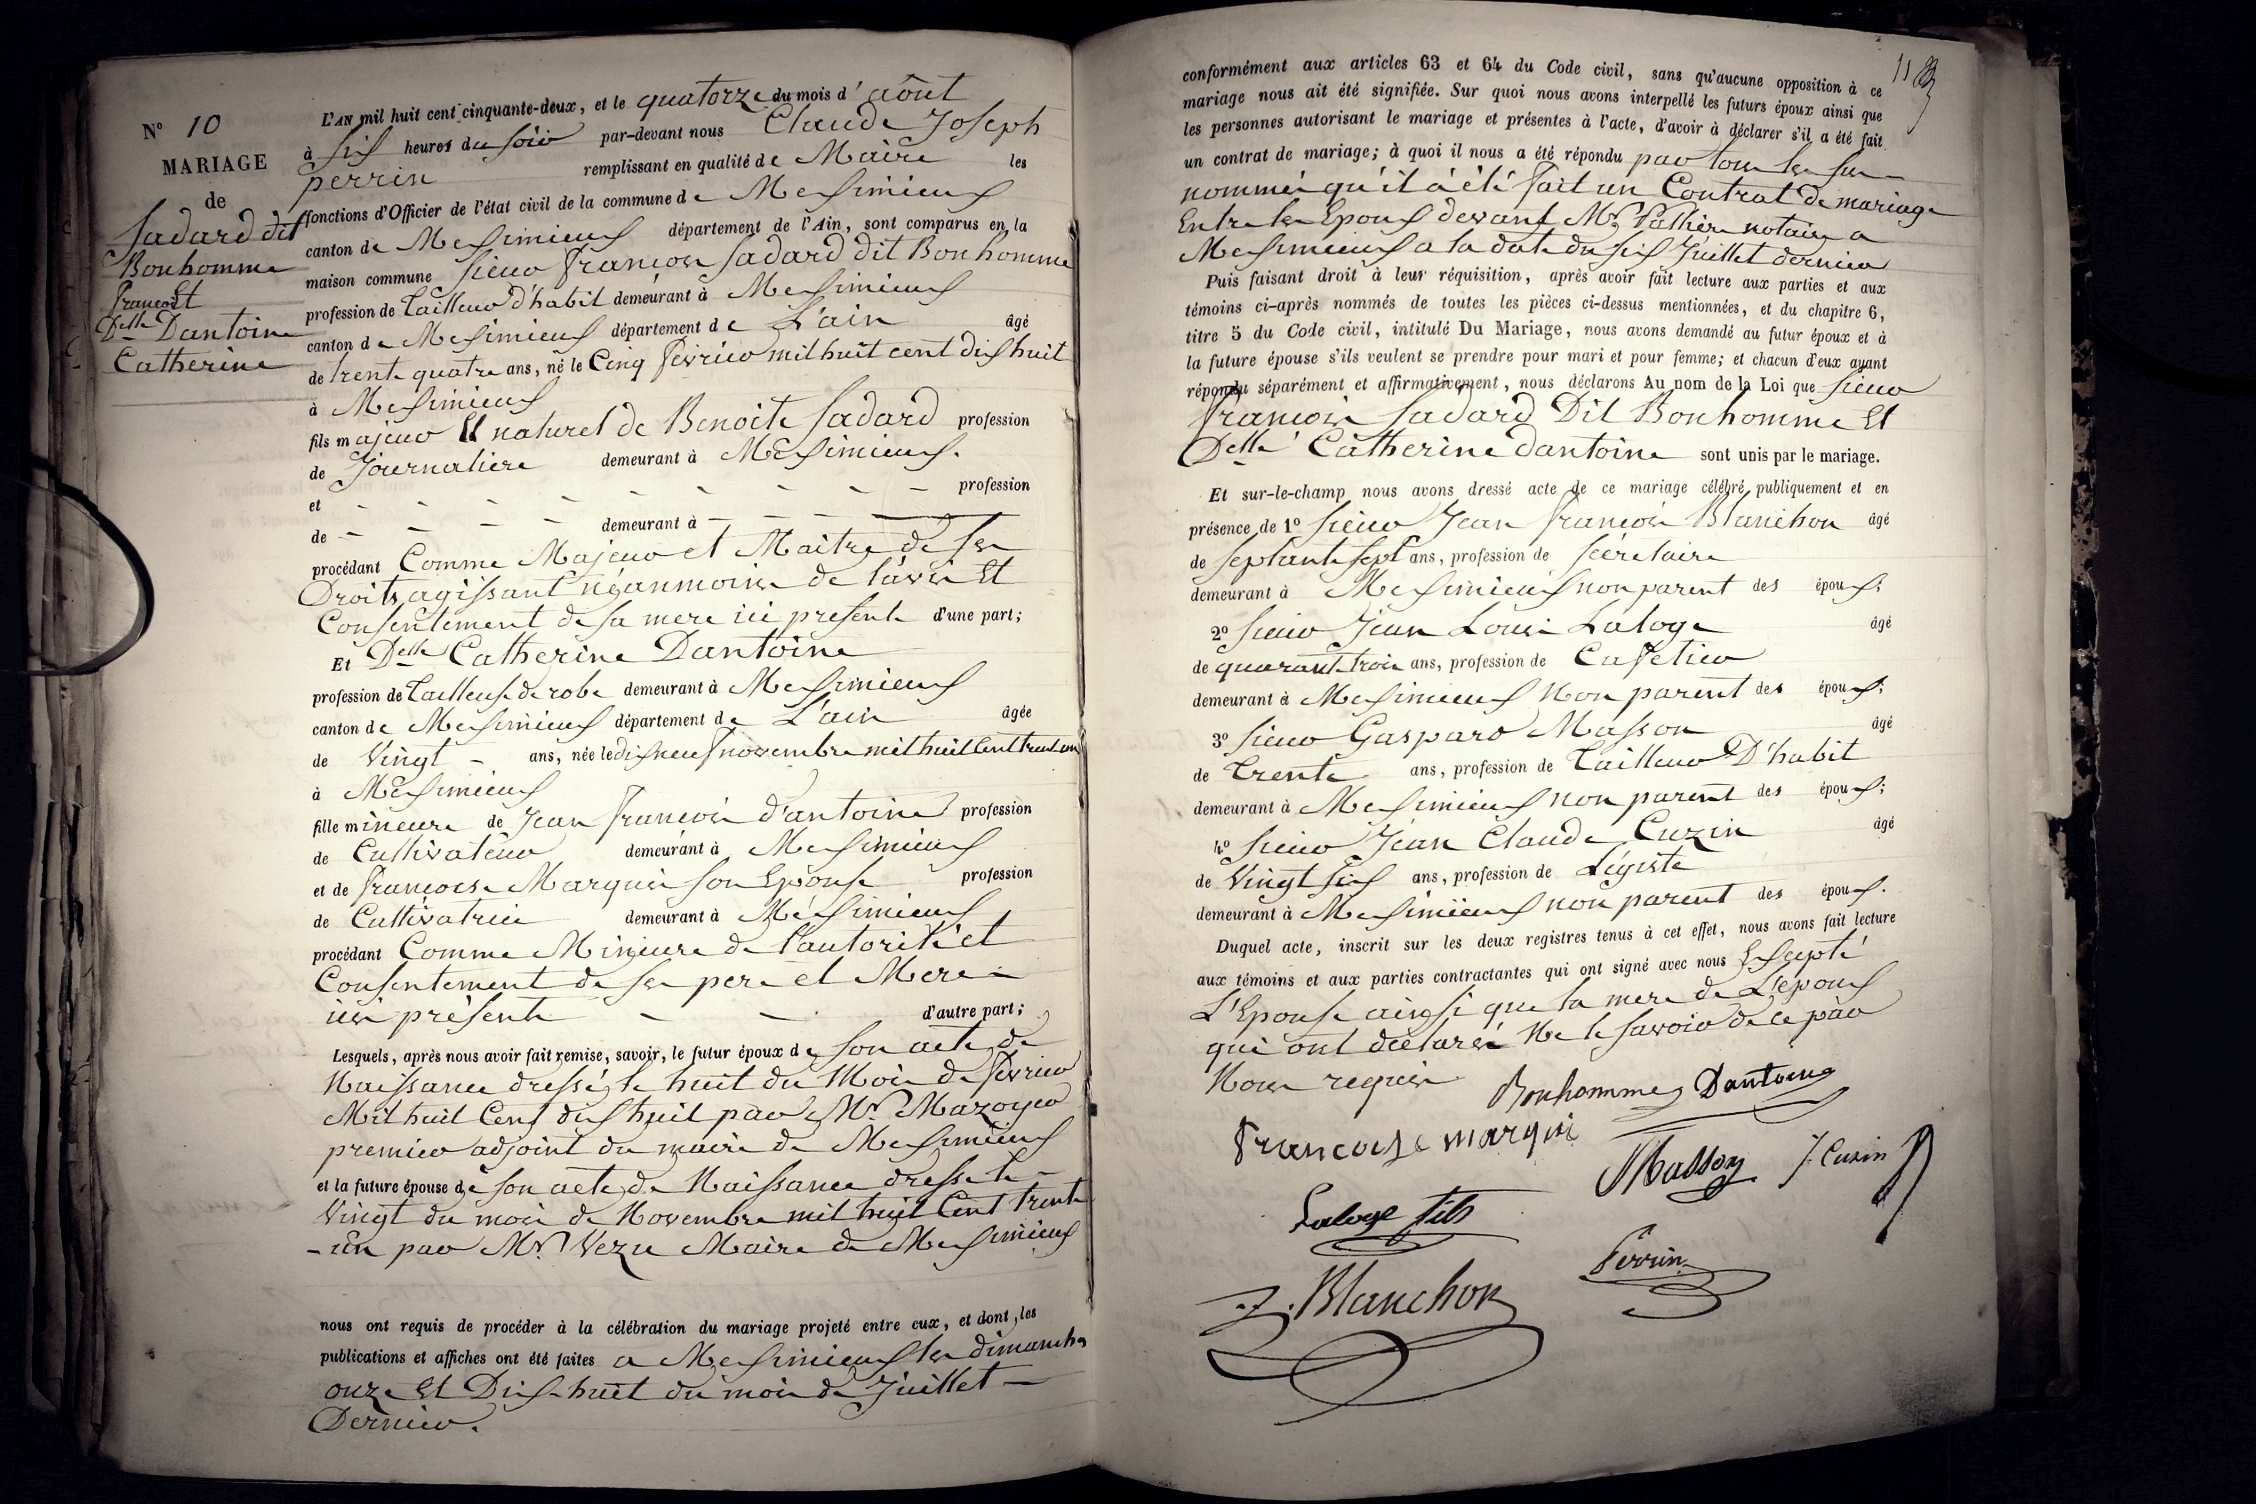 N° 10
MARIAGE
de
Sadard dit
Bonhomme
François Et
Delle Dantoine
Catherine
L'AN mil huit cent cinquante-deux, et le quatorze du mois d'août
à six heures du soir par-devant nous Claude Joseph
perrin remplissant en qualité de Maire les
fonctions d'Officier de l'état civil de la commune de Meximieux
canton de Meximieux département de l'Ain, sont comparus en la
maison commune sieur françois Sadard dit Bonhomme
profession de Tailleur d'habit demeurant à Meximieux
canton de Meximieux département de L'ain âgé
de trente quatre ans, né le Cinq fevrier mil huit cent dix huit
à Meximieux
fils majeur Et naturel de Benoite Sadard profession
de Journaliere demeurant à Meximieux.
et - - - - - - - - - profession
de - - - - demeurant à - - -
procédant Comme Majeur et Maitre de ses
Droits, agissant néanmoins de l'avis Et
Consentement de sa mere ici presente d'une part;
Et Delle Catherine Dantoine
profession de Tailleuse de robe demeurant à Meximieux
canton de Meximieux département de L'ain âgée
de Vingt - ans, née le dix neuf novembre mil huit Cent trente un
à Meximieux
fille mineure de Jean françois d'antoine profession
de Cultivateur demeurant à Meximieux
et de françoise Marquis son Epouse profession
de Cultivatrice demeurant à Meximieux
procédant Comme Mineure de l'autorité et
Consentement de ses pere et Mere -
ici présents - - d'autre part;
Lesquels, après nous avoir fait remise, savoir, le futur époux de son acte de
Naissance dressé le huit du Mois de fevrier
Mil huit Cent dix huit par Mr. Mazoyer
premier adjoint du maire de Meximieux
et la future épouse de son acte de Naissance dressé le
Vingt du mois de Novembre mil huit Cent trente
-un par Mr. Vezu Maire de Meximieux
nous ont requis de procéder à la célébration du mariage projeté entre eux, et dont les
publications et affiches ont été faites a Meximieux les dimanches
onze Et Dix-huit du mois de Juillet -
Dernier.
11
conformément aux articles 63 et 64 du Code civil, sans qu'aucune opposition à ce
mariage nous ait été signifiée. Sur quoi nous avons interpellé les futurs époux ainsi que
les personnes autorisant le mariage et présentes à l'acte, d'avoir à déclarer s'il a été fait
un contrat de mariage; à quoi il nous a été répondu par tous les sus-
nommés qu'il à été fait un Contrat de mariage
Entre les Epoux devant Mr. notaire a
Meximieux a la date du six Juillet dernier
Puis faisant droit à leur réquisition, après avoir fait lecture aux parties et aux
témoins ci-après nommés de toutes les pièces ci-dessus mentionnées, et du chapitre 6,
titre 5 du Code civil, intitulé Du Mariage, nous avons demandé au futur époux et à
la future épouse s'ils veulent se prendre pour mari et pour femme; et chacun d'eux ayant
répondu séparément et affirmativement, nous déclarons Au nom de la Loi que sieur
françois Sadard Dit Bonhomme Et
Delle Catherine Dantoine sont unis par le mariage.
Et sur-le-champ nous avons dressé acte de ce mariage célébré publiquement et en
présence de 1° sieur Jean françois Blanchon âgé
de septante sept ans, profession de Sécretaire
demeurant à Meximieux non parent des époux;
2° sieur Jean Louis Laloge âgé
de quarante trois ans, profession de Cafetier
demeurant à Meximieux Non parent des époux;
3° sieur Gaspard Masson âgé
de Trente ans, profession de Tailleur D'habit
demeurant à Meximieux non parent des époux;
4° sieur Jean Claude Cuzin âgé
de Vingt six ans, profession de Légiste
demeurant à Meximieux non parent des époux.
Duquel acte, inscrit sur les deux registres tenus à cet effet, nous avons fait lecture
aux témoins et aux parties contractantes qui ont signé avec nous Excepté
L'Epouse ainsi que la mere de L'epoux
qui ont déclarés Ne le savoir de ce par
Nous requis
Bonhomme Dantoine
francoise marquis
Masson J. Cuzin
Laloge fils
Perrin
J. Blanchon